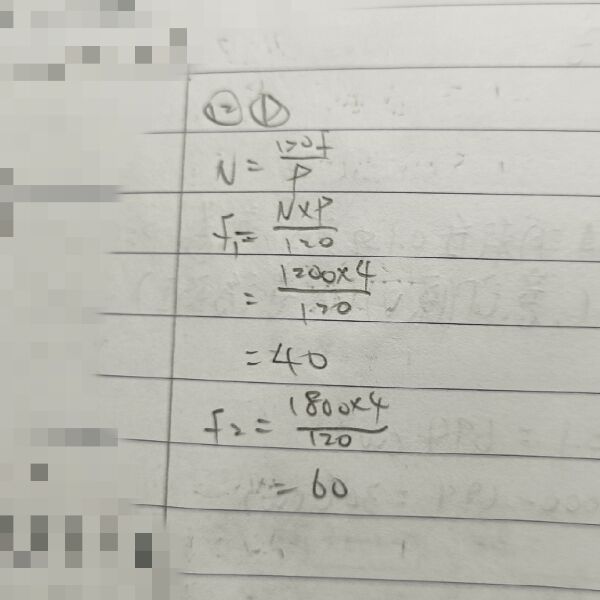 ⑫ ①
N = 120f / P
f₁ = N×P / 120
= 1200×4 / 120
= 40
f₂ = 1800×4 / 120
= 60